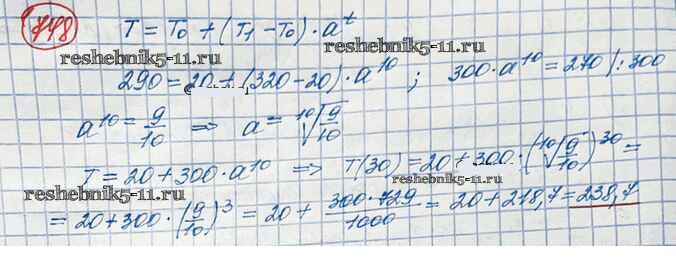 748 T = T₀ + (T₁ - T₀) · aᵗ
reshebnik5-11.ru reshebnik5-11.ru
290 = 20 + (320 - 20) · a¹⁰ ; 300 · a¹⁰ = 270 /: 300
a¹⁰ = 9/10 => a = ¹⁰√(9/10)
T = 20 + 300 · a¹⁰ => T(30) = 20 + 300 · (¹⁰√(9/10))³⁰ =
reshebnik5-11.ru reshebnik5-11.ru
= 20 + 300 · (9/10)³ = 20 + (300 · 729)/1000 = 20 + 218,7 = 238,7
reshebnik5-11.ru